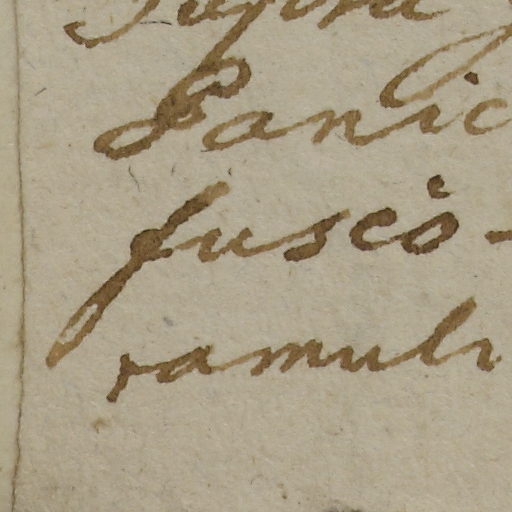 Panic
fusco-
ramuli